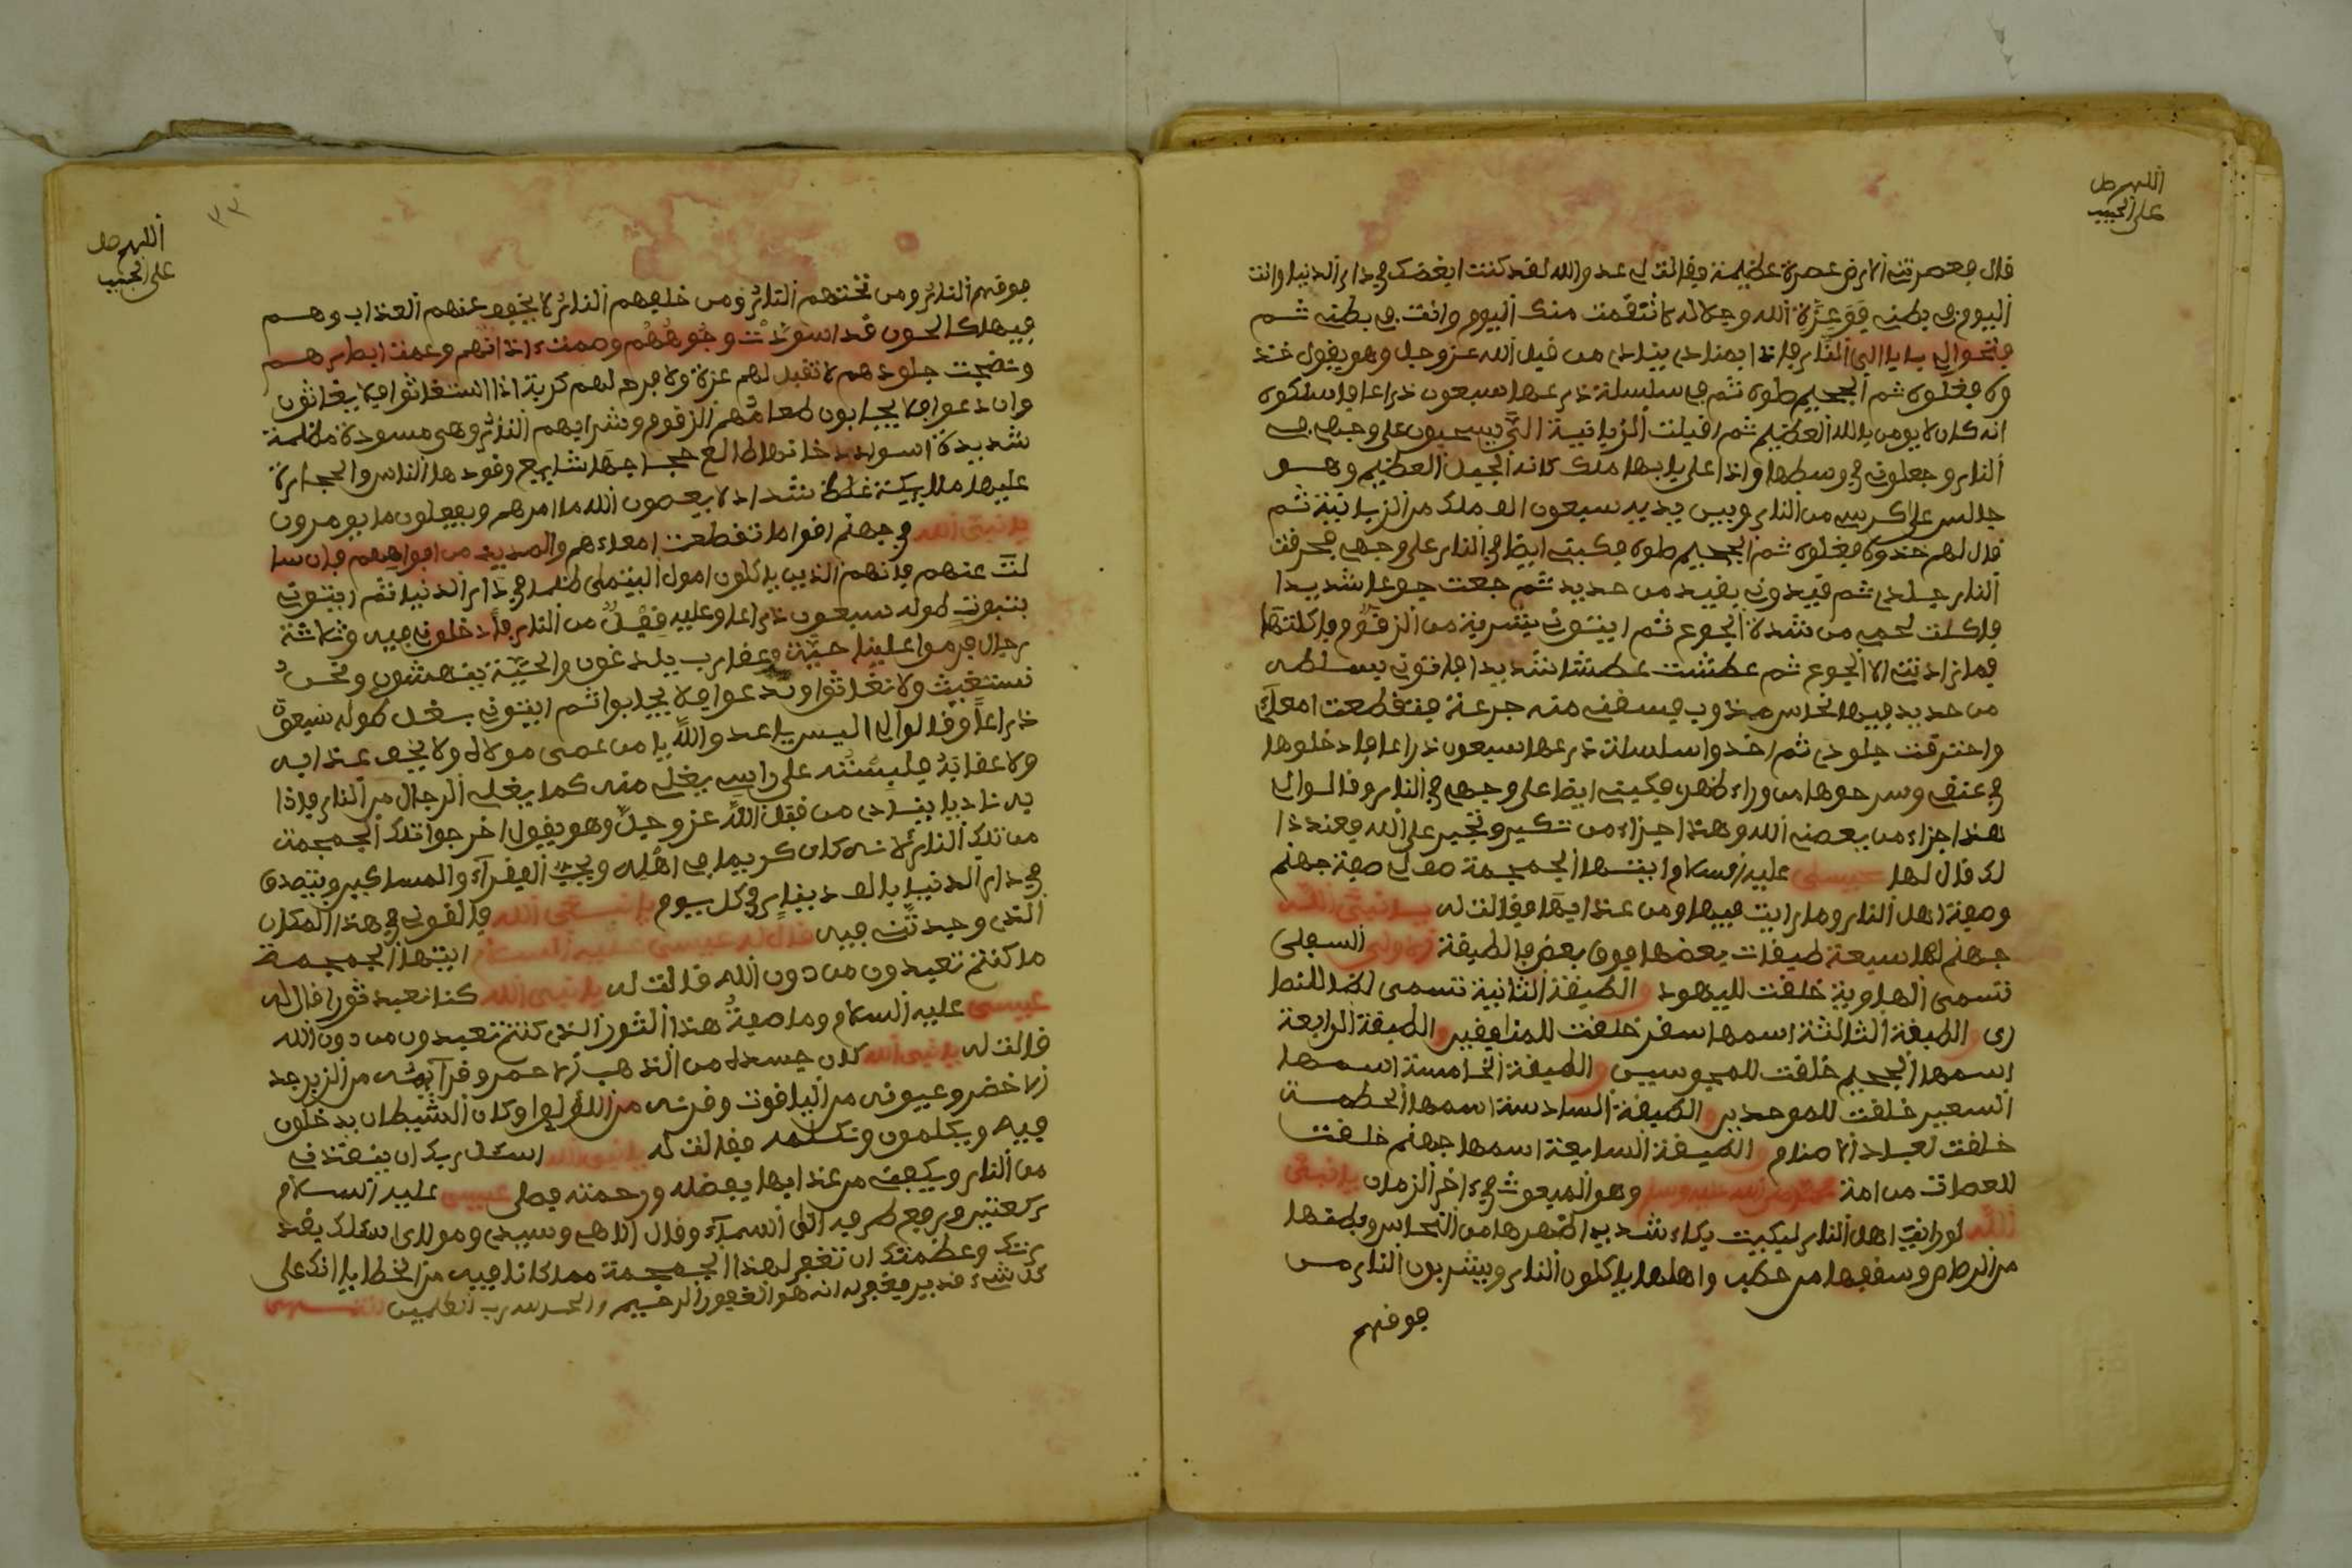 اللهم صل
على الحبيب
قال فعصرتني الارض عصرة عظيمة فقالت لي عدو الله لقد كنت ابغضك في دار الدنيا وانت
اليوم في بطني فوعزة الله وجلاله لانتقمت منك اليوم وانت في بطني ثم
فتحوا لي بابا الي النار فاذا بمنادي ينادي من قبل الله عز وجل وهو يقول خذ
وه فغلوه ثم الجحيم صلوه ثم في سلسلة ذرعها سبعون ذراعا فاسلكوه
انه كان لا يومن بالله العظيم ثم اقبلت الزبانية الي يسحبون على وجهي في
النار وجعلوني في وسطها واذا على بابها ملك كانه الجبل العظيم وهو
جالس على كرسي من النار وبين يديه سبعون الف ملك من الزبانية ثم
قال لهم خذوه فغلوه ثم الجحيم صلوه فكبتي ايضا في النار على وجهي فحرقت
النار جلدي ثم قيدوني بقيد من حديد ثم جعت جوعا شديدا
فاكلت لحمي من شدة الجوع ثم ايتوني بشربة من الزقوم فاكلتها
فما زادني الا الجوع ثم عطشت عطشا شديدا فاتوني
من حديد فيها نحاس مذوب فسقني منه جرعة فتقطعت امعاي
واحترقت جلودي ثم اخذوا سلسلة ذرعها سبعون ذراعا فادخلوها
في عنقي وسرحوها من وراء ظهري فكبني ايضا على وجهي في النار وقالوا لي
هذا جزاء من يعصي الله وهذا جزاء من تكبر وتجبر على الله فعند ذا
لك قال لها عيسى عليه السلام ايتها الجمجمة صف لي صفة جهنم
وصفة اهل النار وما رايت فيها ومن عذابها فقالت له يا نبي الله
جهنم لها سبعة طبقات بعضها فوق بعض فالطبقة الاولى السفلى
تسمى الهاوية خلقت لليهود والطبقة الثانية تسمى لظا للنصا
رى والطبقة الثالثة اسمها سقر خلقت للمنافقين والطبقة الرابعة
اسمها الجحيم خلقت للمجوسيين والطبقة الخامسة اسمها
السعير خلقت للموحدين والطبقة السادسة اسمها الحطمة
خلقت لعباد الاصنام والطبقة السابعة اسمها جهنم خلقت
للعصات من امة محمد صلى الله عليه وسلم وهو المبعوث في اخر الزمان يا نبي
الله لو رايت اهل النار لبكيت بكاء شديدا ظهرها من النحاس وبطنها
من الرصاص وسقفها من حطب واهلها ياكلون النار ويشربون النار من
فوقهم
اللهم صل
على الحبيب
٣٣
فوقهم النار ومن تحتهم النار ومن خلفهم النار لا يخفف عنهم العذاب وهم
فيها كالحون قد اسودت وجوههم وصمت اذانهم وعمت ابصارهم
ونضجت جلودهم لا تقبل لهم عزة ولا فرج لهم كربة اذا استغاثوا فلا يغاثون
وان دعوا فلا يجابون طعامهم الزقوم وشرابهم النار وهي مسودة مظلمة
شديدة اسود دخانها طالع وقودها الناس والحجارة
عليها ملايكة غلظ شداد لا يعصون الله ما امرهم ويفعلون ما يومرون
يا نبي الله في جهنم اقواما تقطعت امعاءهم والصديد من افواههم فان سا
لت عنهم فانهم الذين ياكلون امول اليتمى ظلما في دار الدنيا ثم ايتوني
بتبوت طوله سبعون ذراعا وعليه قفل من النار فادخلوني فيه وثلاثة
رجال فرموا علينا حية وعقارب يلدغون والحية ينهشون ونحن
نستغيث ولا نغاثوا وندعوا فلا يجابوا ثم ايتوني بنعل طوله سبعون
ذراعا وقالوا لي البس يا عدو الله يا من عصى مولاه ولا يخف عذابه
ولا عقابه فلبسته على راسي يغلي منه كما يغلي الرجال من النار فاذا
به ناديا ينادي من قبل الله عز وجل وهو يقول اخرجوا تلك الجمجمة
من تلك النار لانه كان كريما في اهله ويحب الفقراء والمساكين ويتصدق
في دار الدنيا بالف دينار في كل يوم يا نبي الله فالقوني في هذا المكان
الذي وجدتني فيه قال له عيسى عليه السلام ايتها الجمجمة
ما كنتم تعبدون من دون الله قالت له يا نبي الله كنا نعبد ثورا قال له
عيسى عليه السلام وما صفة هذا الثور الذي كنتم تعبدون من دون الله
قالت له يا نبي الله كان جسده من الذهب الاحمر وقرآيمه من الزبرجد
الاخضر وعيونه من الياقوت وقرنه من اللؤلوا وكان الشيطان يدخلون
فيه ويكلمون ونكلمه فقالت له يا نبي الله اسئل ربك ان ينقذني
من النار ويكفني من عذابها بفضله ورحمته فصلى عيسى عليه السلام
ركعتين ورفع طرفه الى السماء وقال الاهي وسيدي ومولاى اسئلك بقد
رتك وعظمتك ان تغفر لهذا الجمجمة مما كانا فيه من الخطايا انك على
كل شيء قدير فغفر له انه هو الغفور الرحيم والحمد لله رب العلمين